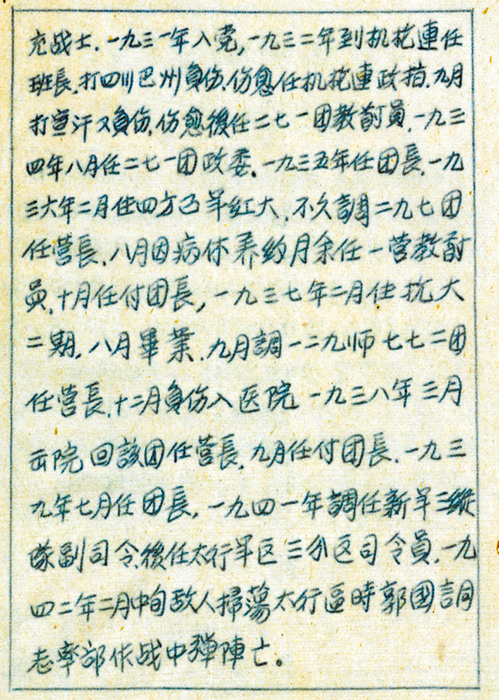 充战士．一九三一年入党，一九三二年到机枪連任
班長．打四川巴州負伤．伤愈任机枪連政指．九月
打宣汗又負伤．伤愈後任二七一团教制員．一九三
四年八月任二七一团政委．一九三五年任团長．一九
三六年二月住四方面军红大．不久調二九七团
任营長．八月因病休养约月余任一营教制
員．十月任付团長，一九三七年二月住抗大
二期．八月畢業．九月調一二九师七七二团
任营長．十二月負伤入医院 一九三八年三月
出院回該团任营長．九月任付团長．一九三
九年七月任团長．一九四一年調任新军三縱
隊副司令．後任太行军区三分区司令員．一九
四二年二月中旬敌人掃蕩太行區時郭國言同
志率部作战中彈陣亡。